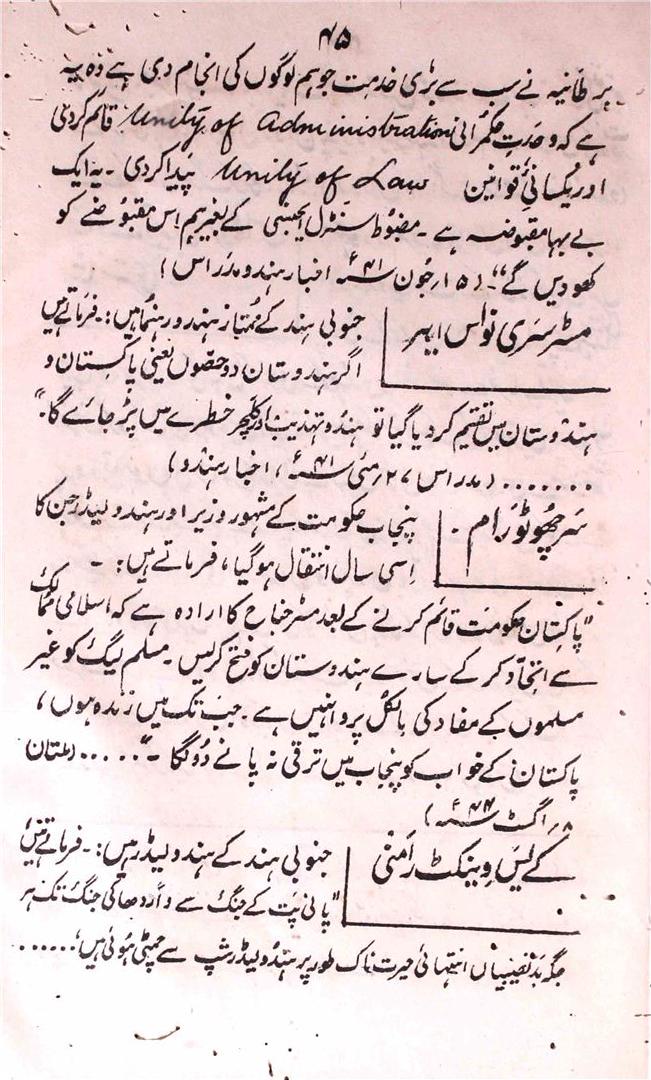 ۴۵
برطانیہ نے سب سے بڑی خدمت جو ہم لوگوں کی انجام دی ہے وہ یہ
ہے کہ وحدتِ حکمرانی Unity of Administration قائم کردی
اور یکسانیٔ قوانین Unity of Law پیدا کردی ۔ یہ ایک
بے بہا مقبوضہ ہے ۔ مضبوط سنٹرل ایجنسی کے بغیر ہم اِس مقبوضے کو
کھودیں گے“۔ (۱۵؍جُون ۴۱ء اخبار ہندو مدراس)
مسٹر سری نواس ایہر
جنوبی ہند کے مُمتاز ہندو رہنما ہیں:۔ فرماتے ہیں
اگر ہندوستان دو حصّوں یعنی پاکستان و
ہندوستان میں تقسیم کر دیا گیا تو ہندو تہذیب اور کلچر خطرے میں پڑ جائے گا۔“
....... (مدراس ۲۷؍مئی ۴۱ء، اخبار ہندو)
سر چھوٹو رَام ۔
پنجاب حکومت کے مشہور وزیر اور ہندو لیڈر جن کا
اِسی سال انتقال ہوگیا، فرماتے ہیں: ۔
”پاکستان حکومت قائم کرنے کے بعد مسٹر جناح کا ارادہ ہے کہ اسلامی ممالک
سے اتحاد کر کے سارے ہندوستان کو فتح کر لیں ۔ مسلم لیگ کو غیر
مسلموں کے مفاد کی بالکل پروا نہیں ہے ۔ جب تک میں زندہ ہوں،
پاکستان کے خواب کو پنجاب میں ترقی نہ پانے دُونگا ۔“..... (ملتان
۸؍اگست ۴۴ء)
کے ایس وینکٹ رامنی
جنوبی ہند کے ہندو لیڈر ہیں:۔ فرماتے ہیں
”پانی پت کے جنگ سے واردھا کی جنگ تک ہر
جگہ بدنصیبیاں انتہائی حیرت ناک طور پر ہندو لیڈر شپ سے چمٹی ہوئی ہیں؛......